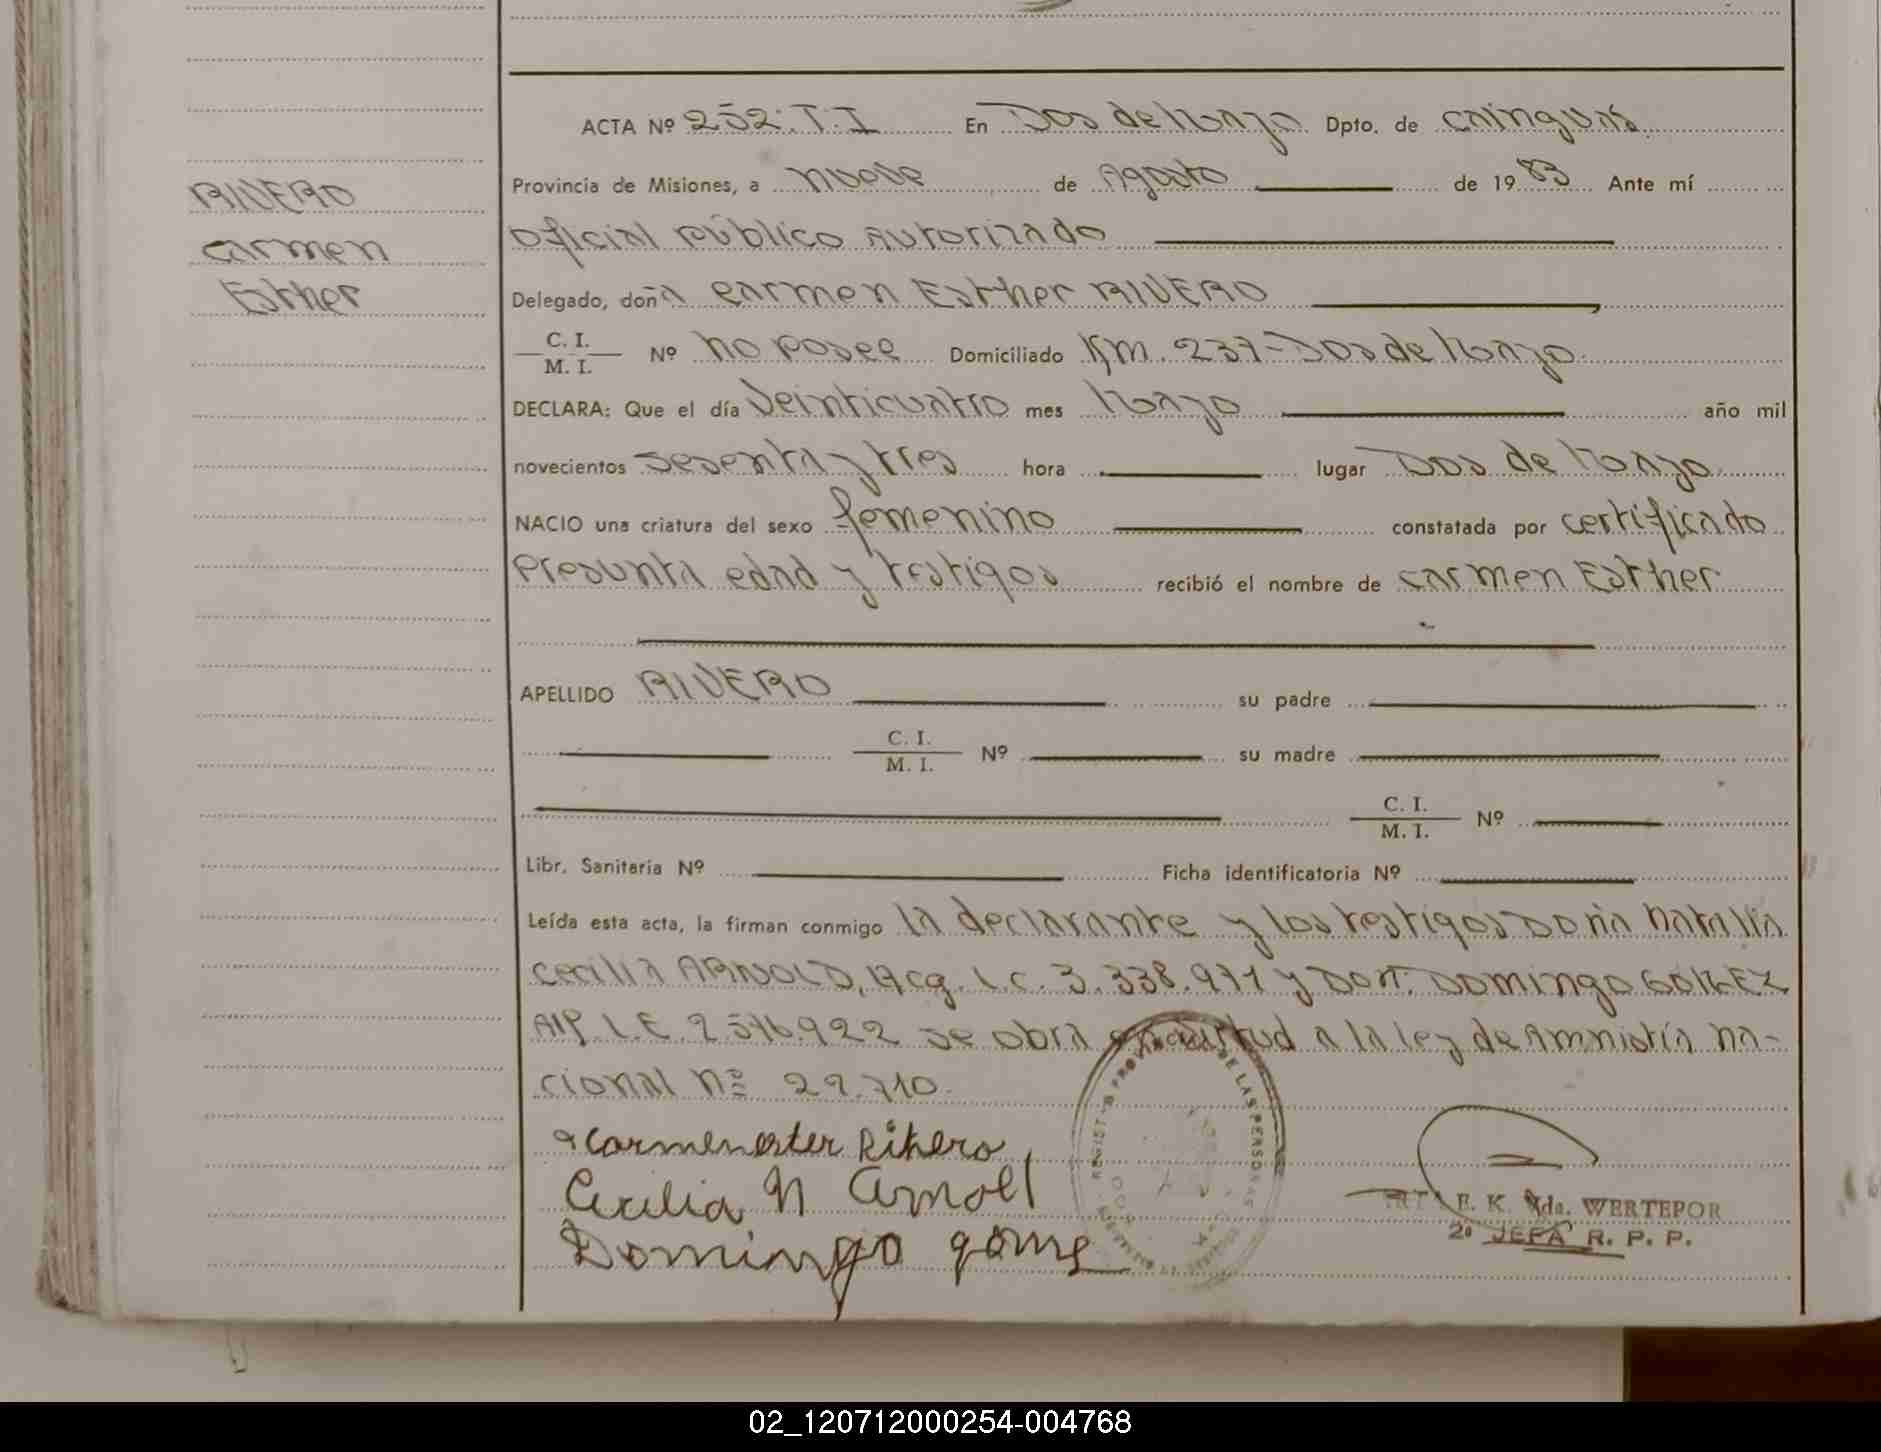 ACTA Nº 252. T. I En Dos de Mayo Dpto. de Cainguás
RIVERO
Carmen
Esther
Provincia de Misiones, a nueve de Agosto de 1983 Ante mí
oficial público Autorizado
Delegado, doña Carmen Esther RIVERO
C. I.
M. I. Nº no posee Domiciliado Km. 237-Dos de Mayo
DECLARA: Que el día Veinticuatro mes Mayo año mil
novecientos sesenta y tres hora lugar Dos de Mayo
NACIO una criatura del sexo femenino constatada por certificado
presunta edad y testigos recibió el nombre de Carmen Esther
APELLIDO RIVERO su padre
C. I.
M. I. Nº su madre
C. I.
M. I. Nº
Libr. Sanitaria Nº Ficha identificatoria Nº
Leída esta acta, la firman conmigo la declarante y los testigos Doña Natalia
Cecilia ARNOLD, Acg. L.C. 3.338.971 y Don. Domingo GOMEZ
AIP. L.E. 2.516.922 se obra en virtud a la ley de Amnistía na-
cional nº 22.710.
Carmen ester Rihero
Cecilia N Arnoll
Domingo gome
E. K. Vda. WERTEPOR
2º JEFA R. P. P.
DE LAS PERSONAS
02_120712000254-004768